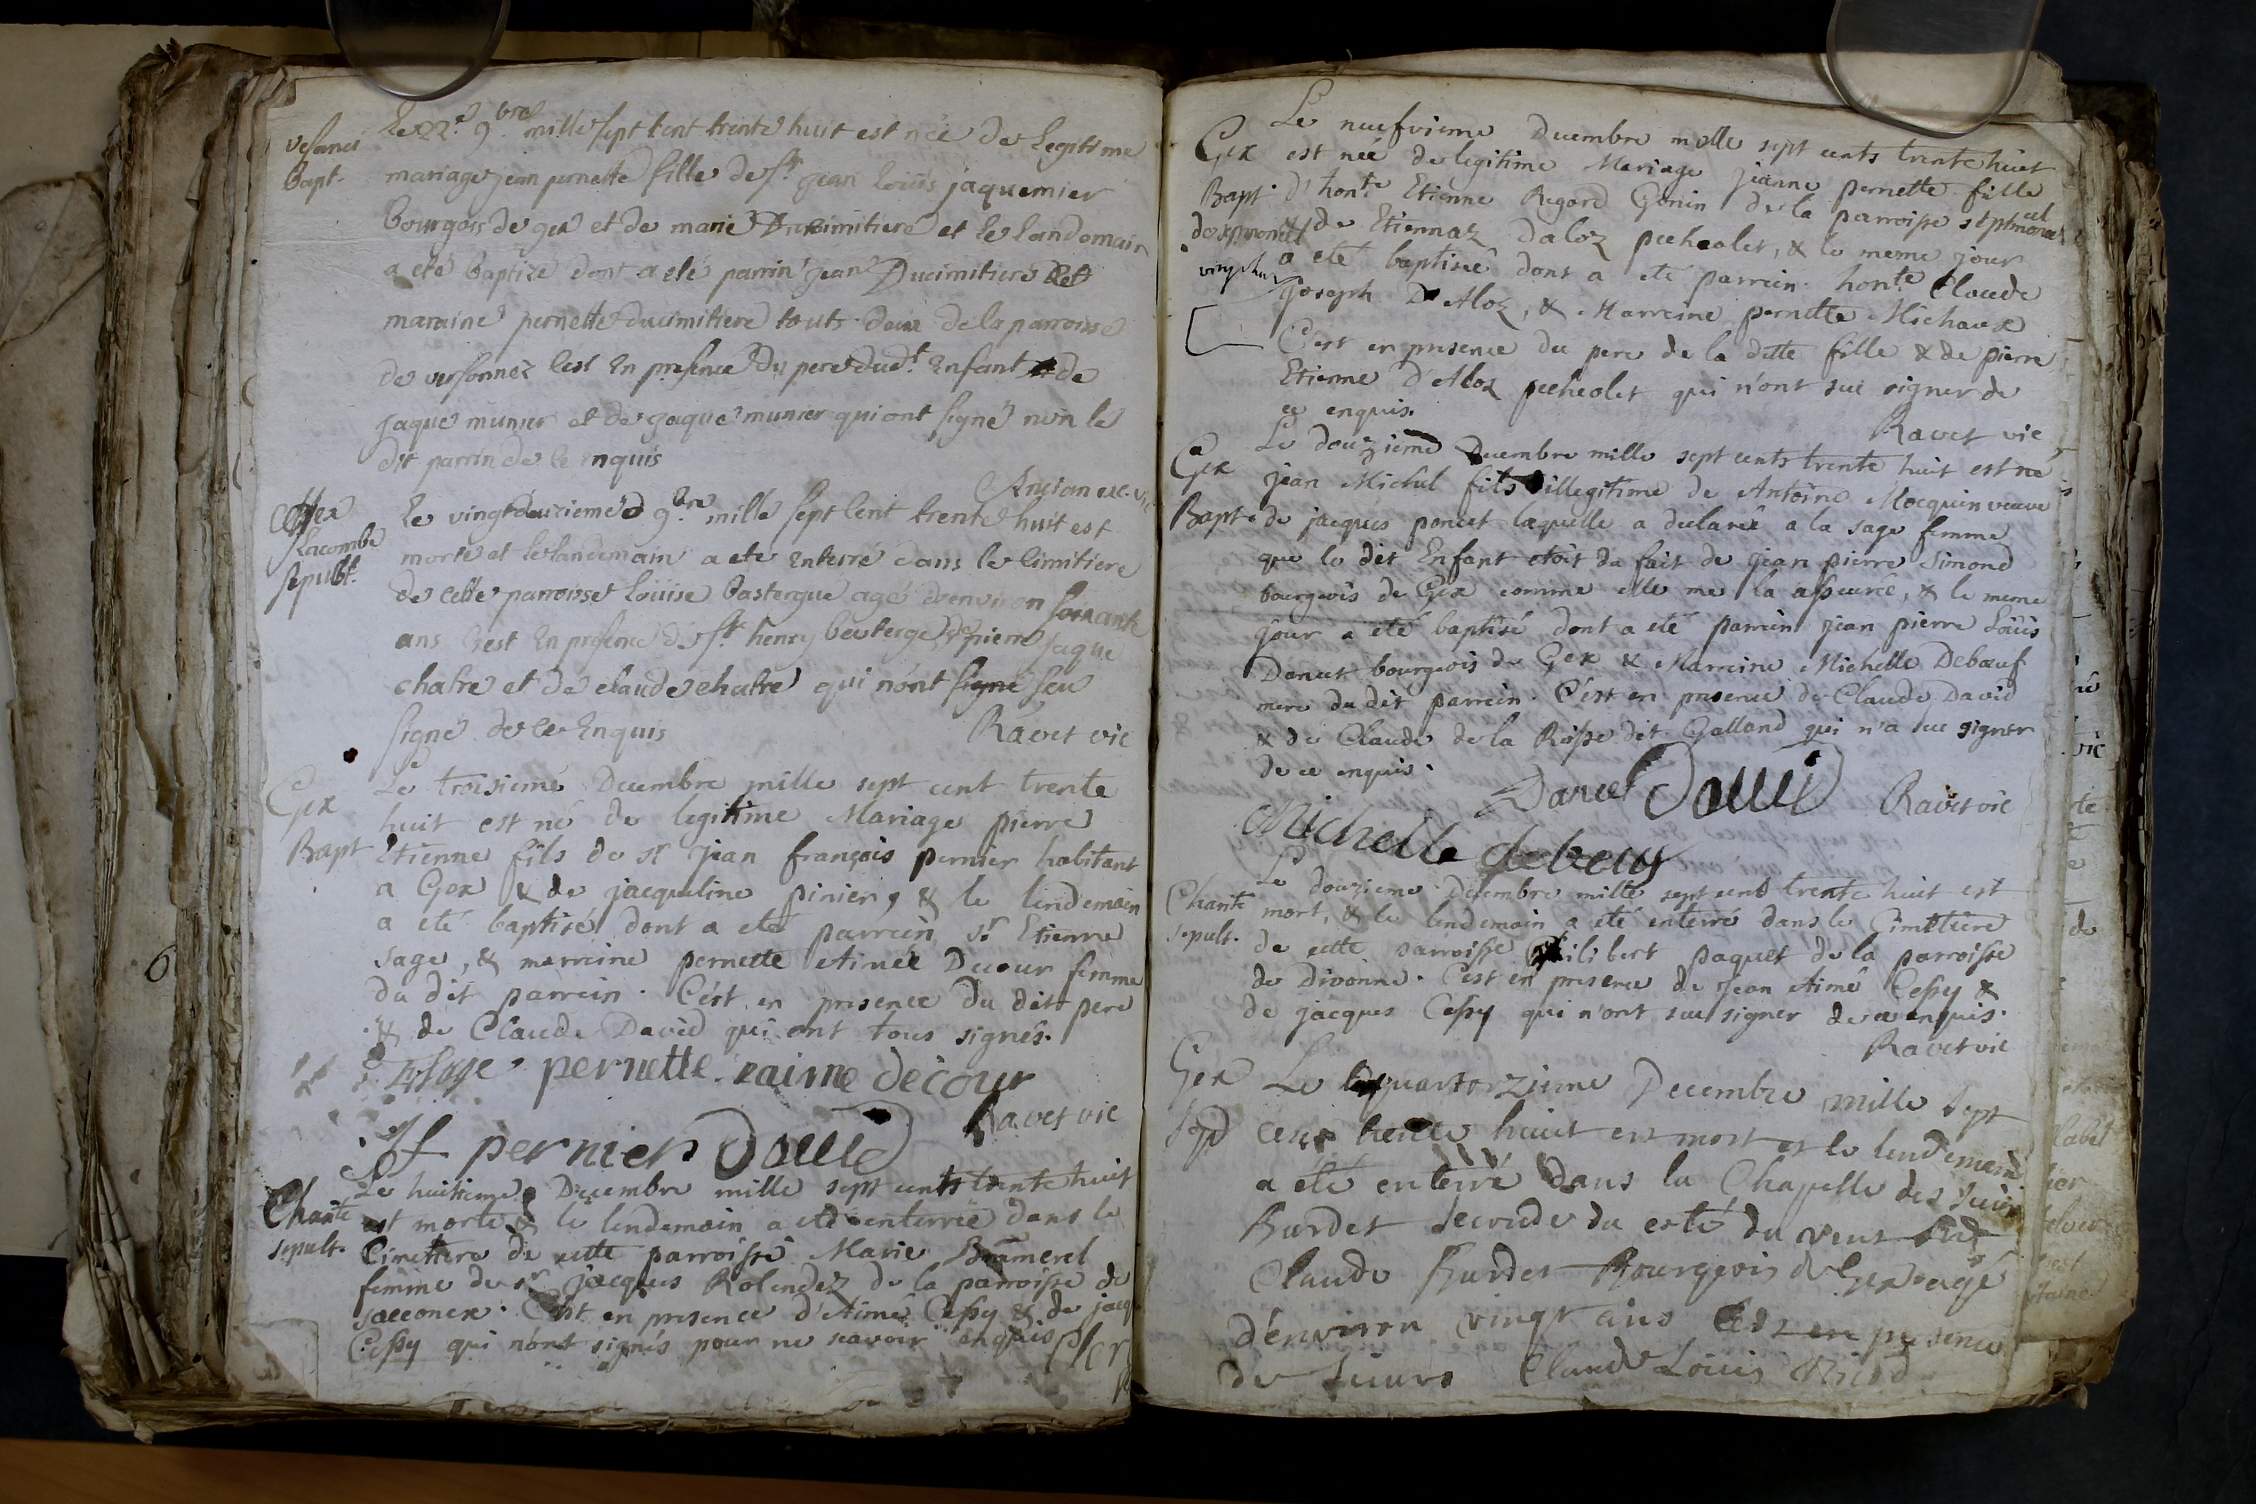 Bapt.
le 22e 9bre mille sept cent trente huit est née de legitime
mariage jean pernette fille de sr jean louïs jaquemier
bourgois de gex et de marie Ducimitiere et le landomain
a eté baptizé dont a eté parrin jean Ducimitiere et
maraine pernette ducimitiere touts deux de la parroisse
de versonnex cest en presence du pere dudt enfant de
jaque munier et de jaque munier qui ont signé non le
dit parrin de ce enquis
Gex
sepult.
le vingtdeuzieme 9bre mille sept cent trente huit est
morte et le landemain a ete enterré dans le cimitiere
de cette parroisse Loüise bastergue agé denviron soixante
ans cest en presence de sr henry de pierre jaque
chatre et de claude chatre qui n'ont signé seu
signé de ce enquis
Ravet vic
Gex
Bapt
Le troisieme Decembre mille sept cent trente
huit est né de legitime Mariage pierre
Etienne fils de sr jean françois pernier habitant
a Gex & de jacqueline pinier, & le lendemain
a eté baptisé dont a eté parrein sr Etienne
sage, & marreine pernette Aimée Decour femme
du dit parrein. C'est en presence du dit pere
& de Claude David qui ont tous signés.
E Sage pernette eaime decour
Ravet vic
Jf pernier David
Chante
sepult.
Le huitieme Decembre mille sept cents trente huit
est morte & le lendemain a eté enterrée dans le
Cimetiere de cette parroisse Marie
femme de sr jacques Rolendez de la parroisse de
sacconex. C'est en presence d'Aimé Cessy & de jacq
Cessy qui n'ont signés pour ne scavoir enquis
Gex
Bapt.
Le neufvieme Decembre mille sept cents trente huit
est née de legitime Mariage jeanne pernette fille
d'honte Etienne Regard Gonin de la parroisse
& de Etiennaz Daloz pecheolet, & le meme jour
a eté baptisée dont a eté parrein honte Claude
Joseph D'Aloz, & Marreine pernette Michaux
C'est en presence du pere de la ditte fille & de pierre
Etienne D'Aloz pecheolet qui n'ont sue signer de
ce enquis.
Ravet vic
Gex
Bapt.
Le douzieme Decembre mille sept cents trente huit est né
jean Michel fils illegitime de Antoine Mocquin veuve
de jacques poncet laquelle a declarée a la sage femme
que le dit Enfant etoit du fait de jean pierre Simond
bourgeois de Gex comme elle me la asseurée, & le meme
jour a eté baptisé dont a eté parrein jean pierre Loüis
Danet bourgeois de Gex & Marreine Michelle Debœuf
mere du dit parrein. C'est en presence de Claude David
& de Claude de la Rosse dit Galland qui n'a sue signer
de ce enquis.
Danet David Ravet vic
Michelle
Chante
sepult.
Le douzieme Decembre mille sept cent trente huit est
mort, & le lendemain a eté enterré dans le Cimetiere
de cette parroisse philibert paquet de la parroisse
de Divonne. C'est en presence de Jean Aimé Cessy &
de jacques Cessy qui n'ont sue signer de ce enquis.
Ravet vic
Gex
Le quattorzieme Decembre mille sept
cent trente huict est mort et le lendemain
a été enterré dans la Chapelle des
Burdet seconde du costé du vent
Claude Burdet Bourgeois de Gex agé
d'environ vingt ans C'est en presence
de sieurs Claude Loüis